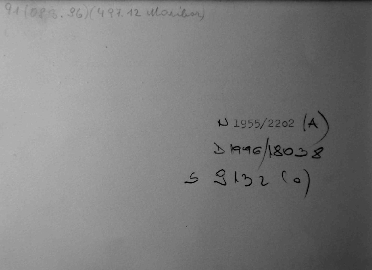 91(084.36)(497.12 Maribor)
N 1955/2202 (A)
D1996/18038
S 9132 (0)